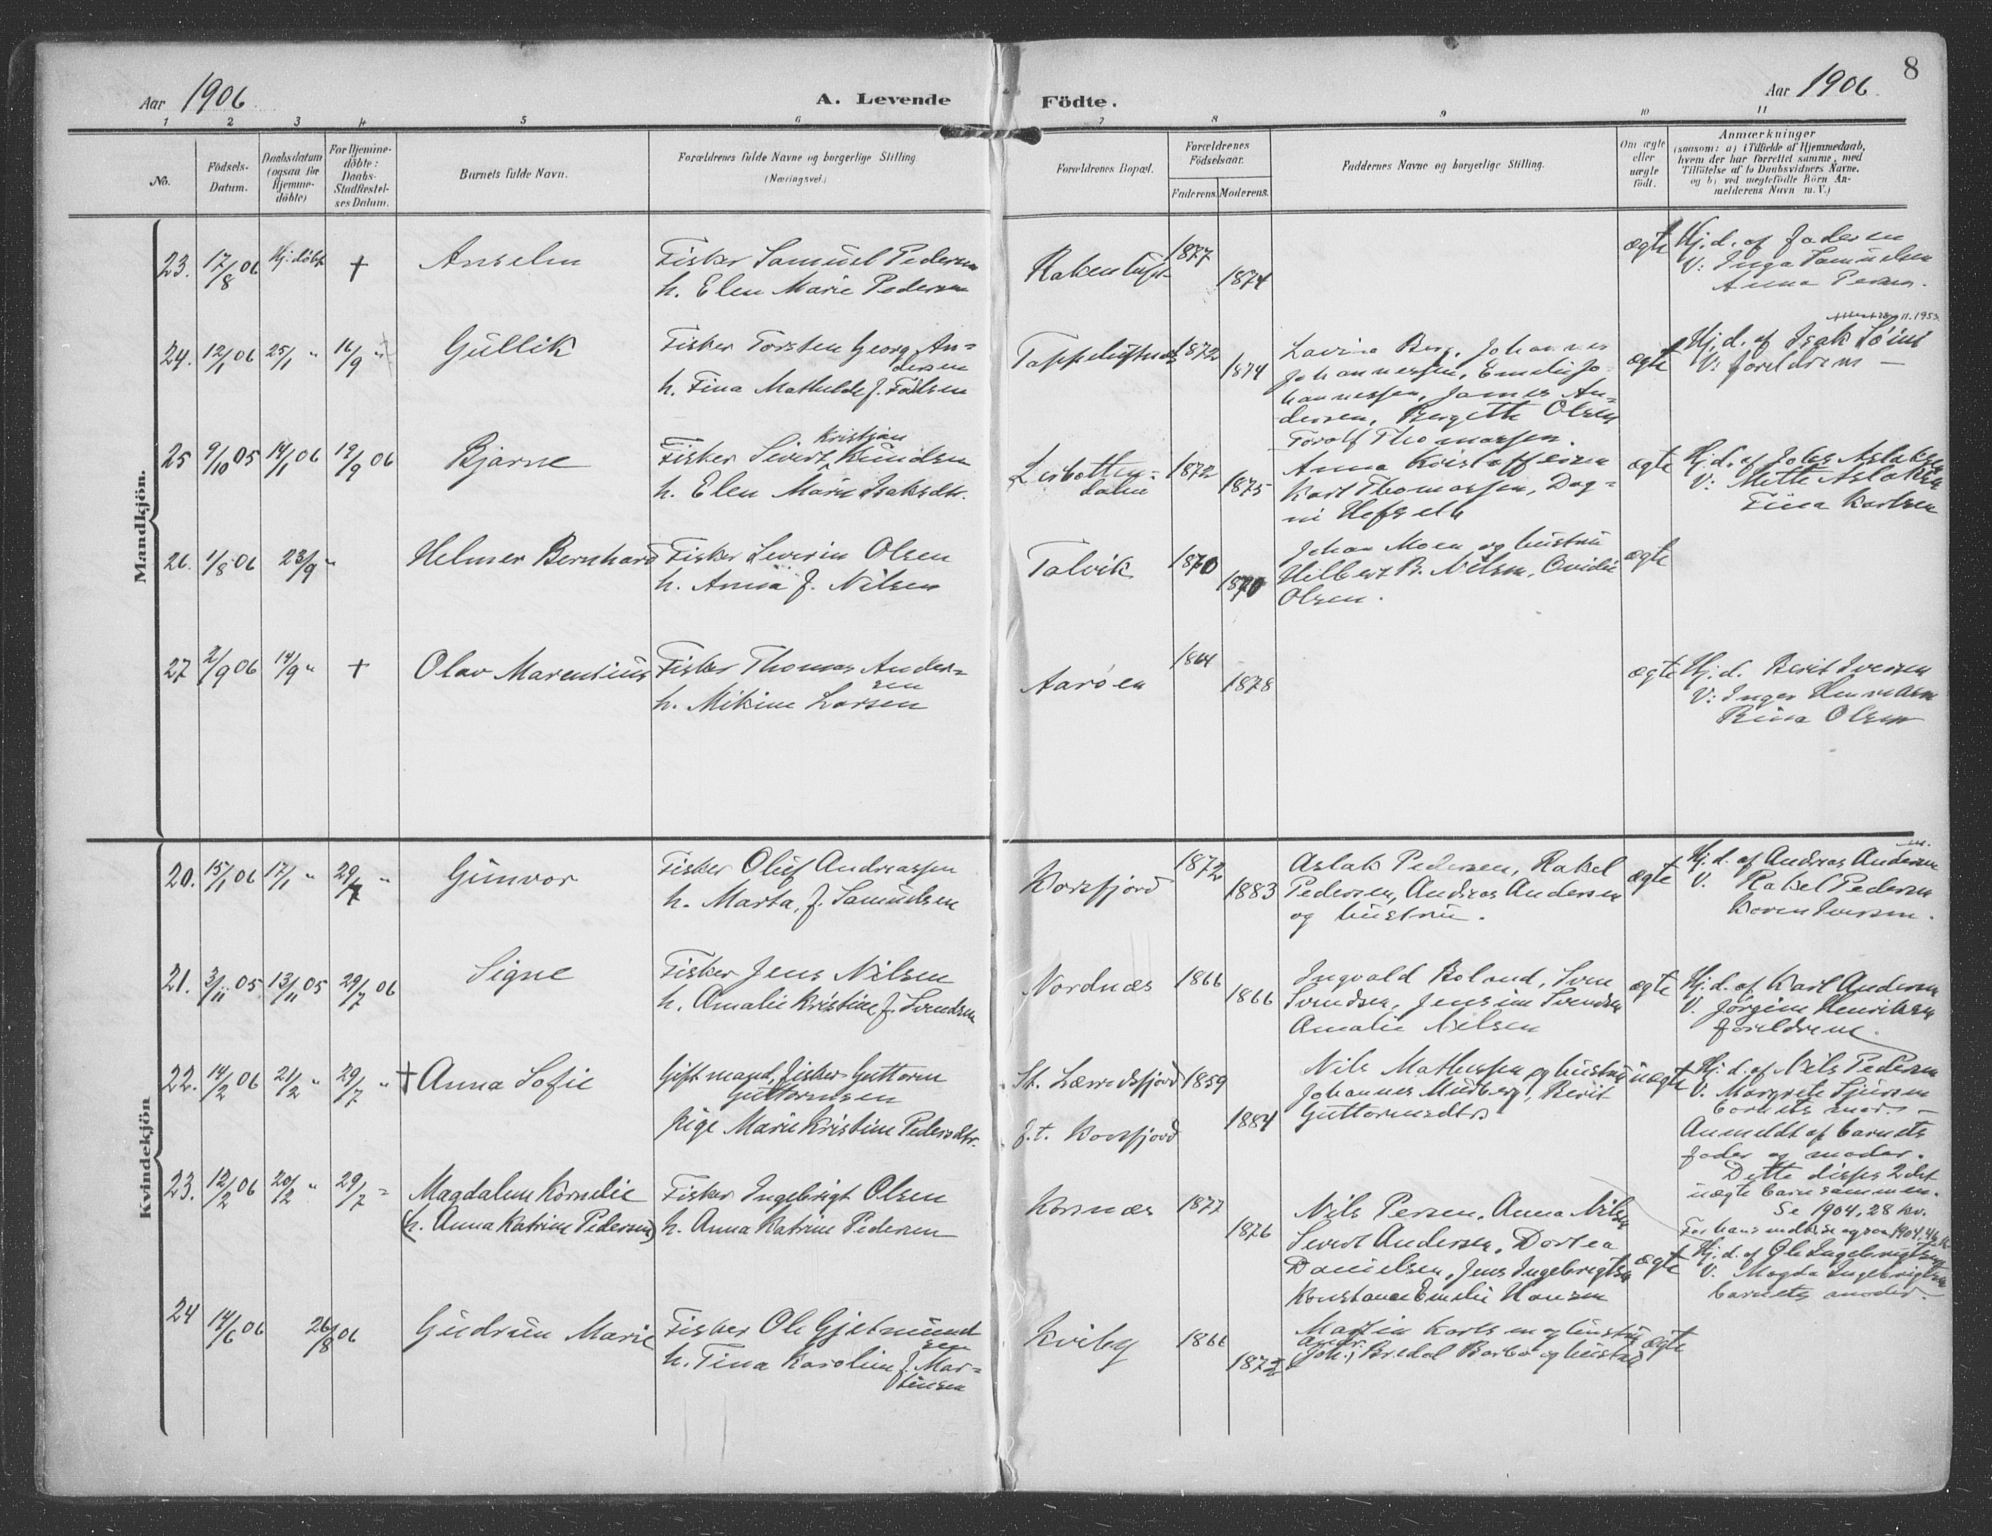 8
Aar 1906
A. Levende
Födte.
Aar 1906
1 2 3 4 5 6 7 8 9 10 11
No.
Födsels-
Datum.
Daabsdatum
(ogsaa for
Hjemme-
döbte)
For Hjemme-
döbte:
Daabs-
Stadfæstel-
ses Datum.
Barnets fulde Navn.
Forældrenes fulde Navne og borgerlige Stilling
(Næringsvei.)
Forældrenes Bopæl.
Forældrenes
Födselsaar.
Faderens.
Moderens.
Faddernes Navne og borgerlige Stilling.
Om ægte
eller
uægte
födt.
Anmærkninger
(saasom: a) i Tilfælde af Hjemmedaab,
hvem der har forrettet samme, med
Tilföielse af to Daabsvidners Navne.
og b) ved uægtefödte Börn An-
melderens Navn m. V.)
Mandkjön.
23. 17/8 06 Hj. döbt † Anselm
Fisker Samuel Pedersen
h. Elen Marie Pedersen
1877
1874
ægte
Hj. d. af faderen
V: Inga Samuelsen
Anna Persen.
24. 12/1 06 25/1 " 16/9 " Gullik
Fisker Torsten Georg An-
dersen
h. Fina Mathilde f.
1872
1874
Lavina Berg, Johannes
Johannessen, Emilie Jo-
hannessen, James An-
dersen, Bergitte Olsen
Torolf Thomassen.
ægte
11.1953
Hj. d. af Isak
V: foreldrene
25 9/10 05 14/1 06 19/9 06 Bjarne
Kristjan
Fisker Sivert Knudsen
h. Elen Marie Isaksdtr.
Lerbotten-
dalen
1872
1875
Anna Kristoffersen
Karl Thomassen, Dag-
ægte
Hj. d. af Johs Aslaksen
V: Mette Aslaksen
Fina Karlsen
26. 1/8 06 23/9 " Helmer Bernhard
Fisker Severin Olsen
h. Anna f. Nilsen
Talvik
1870
1870
Johan Moen og hustru
Hilbert B. Nilsen,
Olsen.
ægte
27 2/9 06 14/9 " † Olav Marensius
Fisker Thomas Ander-
sen
h. Mikine Larsen
Aarøen
1878
ægte
Hj. d. Berit Iversen
V: Inger
Rina Olsen
Kvindekjön
20. 15/1 06 17/1 " 29/7 " Gunvor
Fisker Oluf Andreassen
h. Marta, f. Samuelsen
Korsfjord
1872
1883
Aslak Pedersen, Rakel
Pedersen, Andreas Andersen
og hustru.
ægte
Hj. d. af Andreas Andersen
V. Rakel Pedersen
Karen Iversen.
21. 3/11 05 13/11 05 29/7 06 Signe
Fisker Jens Nilsen
h. Amalie Kristine f. Svendsen
Nordnæs
1866
1866
Ingvald Boland, Sven
Svendsen, Jensine Svendsen
Amalie Nilsen
ægte
Hj. d. af Karl Andersen
V. Jørgine Henriksen
foreldrene.
22. 14/2 06 21/2 " 29/7 " † Anna Sofie
Gift mand, fisker Guttorm
Guttormsen
Pige Marie Kristine Pedersdtr.
St. Lerredsfjord
f. t. Korsfjord
1859
1884
Nils Mathessen og hustru
Johannes Berit
Guttormsdtr
uægte
Hj. d. af Nils Pedersen
V. Margrete
barnets mor
Anmeldt af barnets
fader og moder.
Dette disses 2det
uægte barn sammen.
Se 1904, 28 kv.
23. 12/2 06 20/2 " 29/7 " Magdalene Kornelie
(h. Anna Katrine Pedersen)
Fisker Ingebrigt Olsen
h. Anna Katrine Pedersen
Korsnæs
1877
1876
Nils Persen, Anna Nilsen
Sivert Andersen, Dortea
Danielsen, Jens Ingebrigtsen
Konstance Emilie Hansen
ægte
Hj. d. af Ole Ingebrigtsen
V. Magda Ingebrigtsen
barnets moder.
24 14/6 06 26/8 06 Gudrun Marie
Fisker Ole Gjetmund
sen
h. Tina Karoline f. Mar-
tinsen
Kviby
1866
1872
Martin Karlsen og hustru
Joh. Bredal Barbo og hustru
ægte